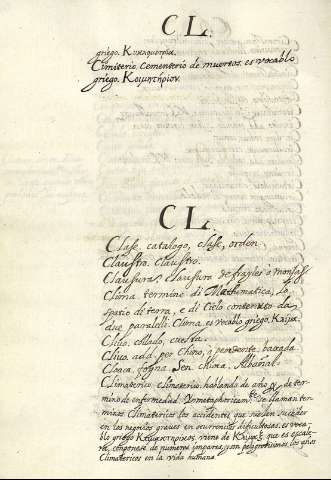 CL.
griego. Κυκλ
Cimiterio. Cementerio de muertos. es vocablo
griego. Κοιμητήριον.
CL.
Clase, catalogo, clase, orden
Claustro. Claustro.
Clausura. clausura de frayles o monjas
Clima termine di Mathematica, lo
spatio di terra, e di Cielo contenuto da
due paralelli. Clima. es vocablo griego. Κλιμα.
Clivo, collado, cuesta.
Clivo. add. per Chino, o pendente, baxada
Cloaca, fogna Sen chiea, Albañal.
Climaterico. Climaterio, hablando de año y de ter
mino de enfermedad. Y metaphoricam.te se llaman ter
minos Climatericos los accidentes que suelen suceder
en los negocios graues en ocurrencias dificultosas. es voca
blo griego Κλιμακτηρικος, viene de Κλιμαξ que es escale
ra, componese de numeros impares, y son peligrosissimos los años
Climatericos en la vida humana